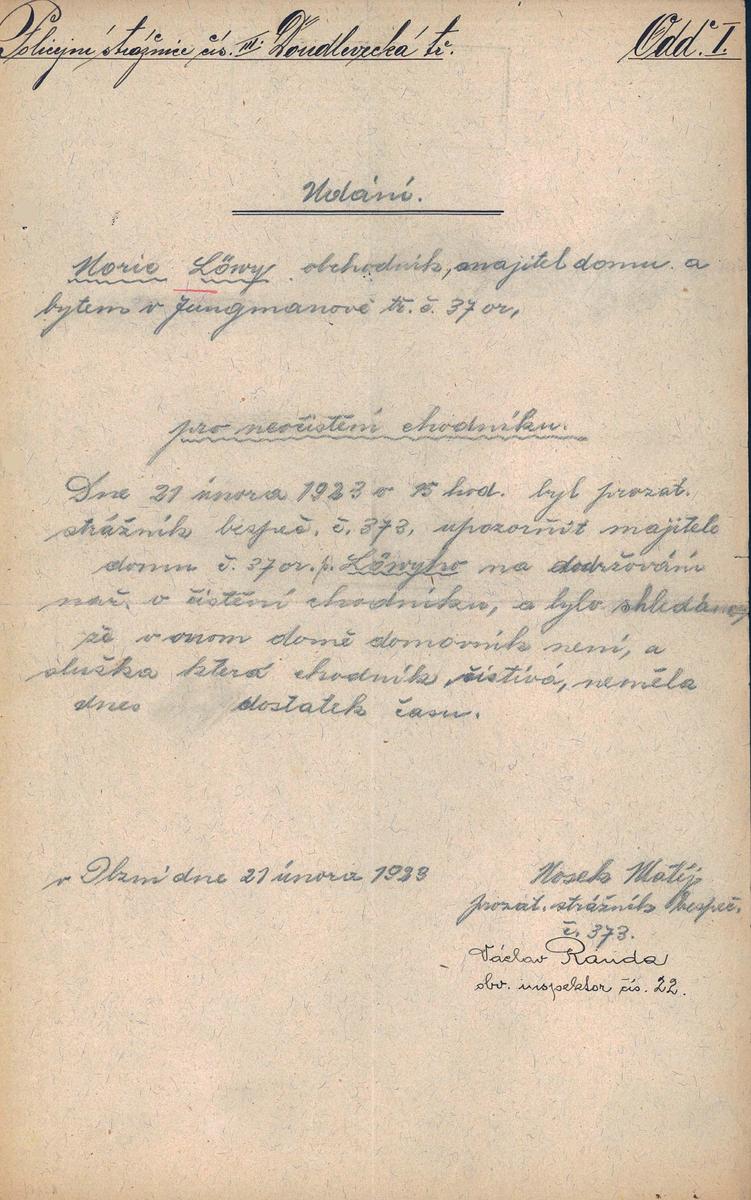 Policejní strážnice čís. III. Doudlevecká tř. Odd. I.
Udání.
Moric Löwy obchodník, majitel domu a
bytem v Jungmanově tř. č. 37 or,
pro nečistění chodníku.
Dne 21 února 1923 v 15 hod. byl prozat.
strážník bespeč. č. 373, upozornit majitele
domu č. 37 or. p. Löwyho na dodržování
nař. o čistění chodníku, a bylo shledáno,
že v onom domě domovník není, a
služka která chodník čistívá, neměla
dnes dostatek času.
v Plzni dne 21 února 1923
Hosek Matěj
prozat. strážník bespeč.
č. 373.
Václav Randa
obv. inspektor čís. 22.